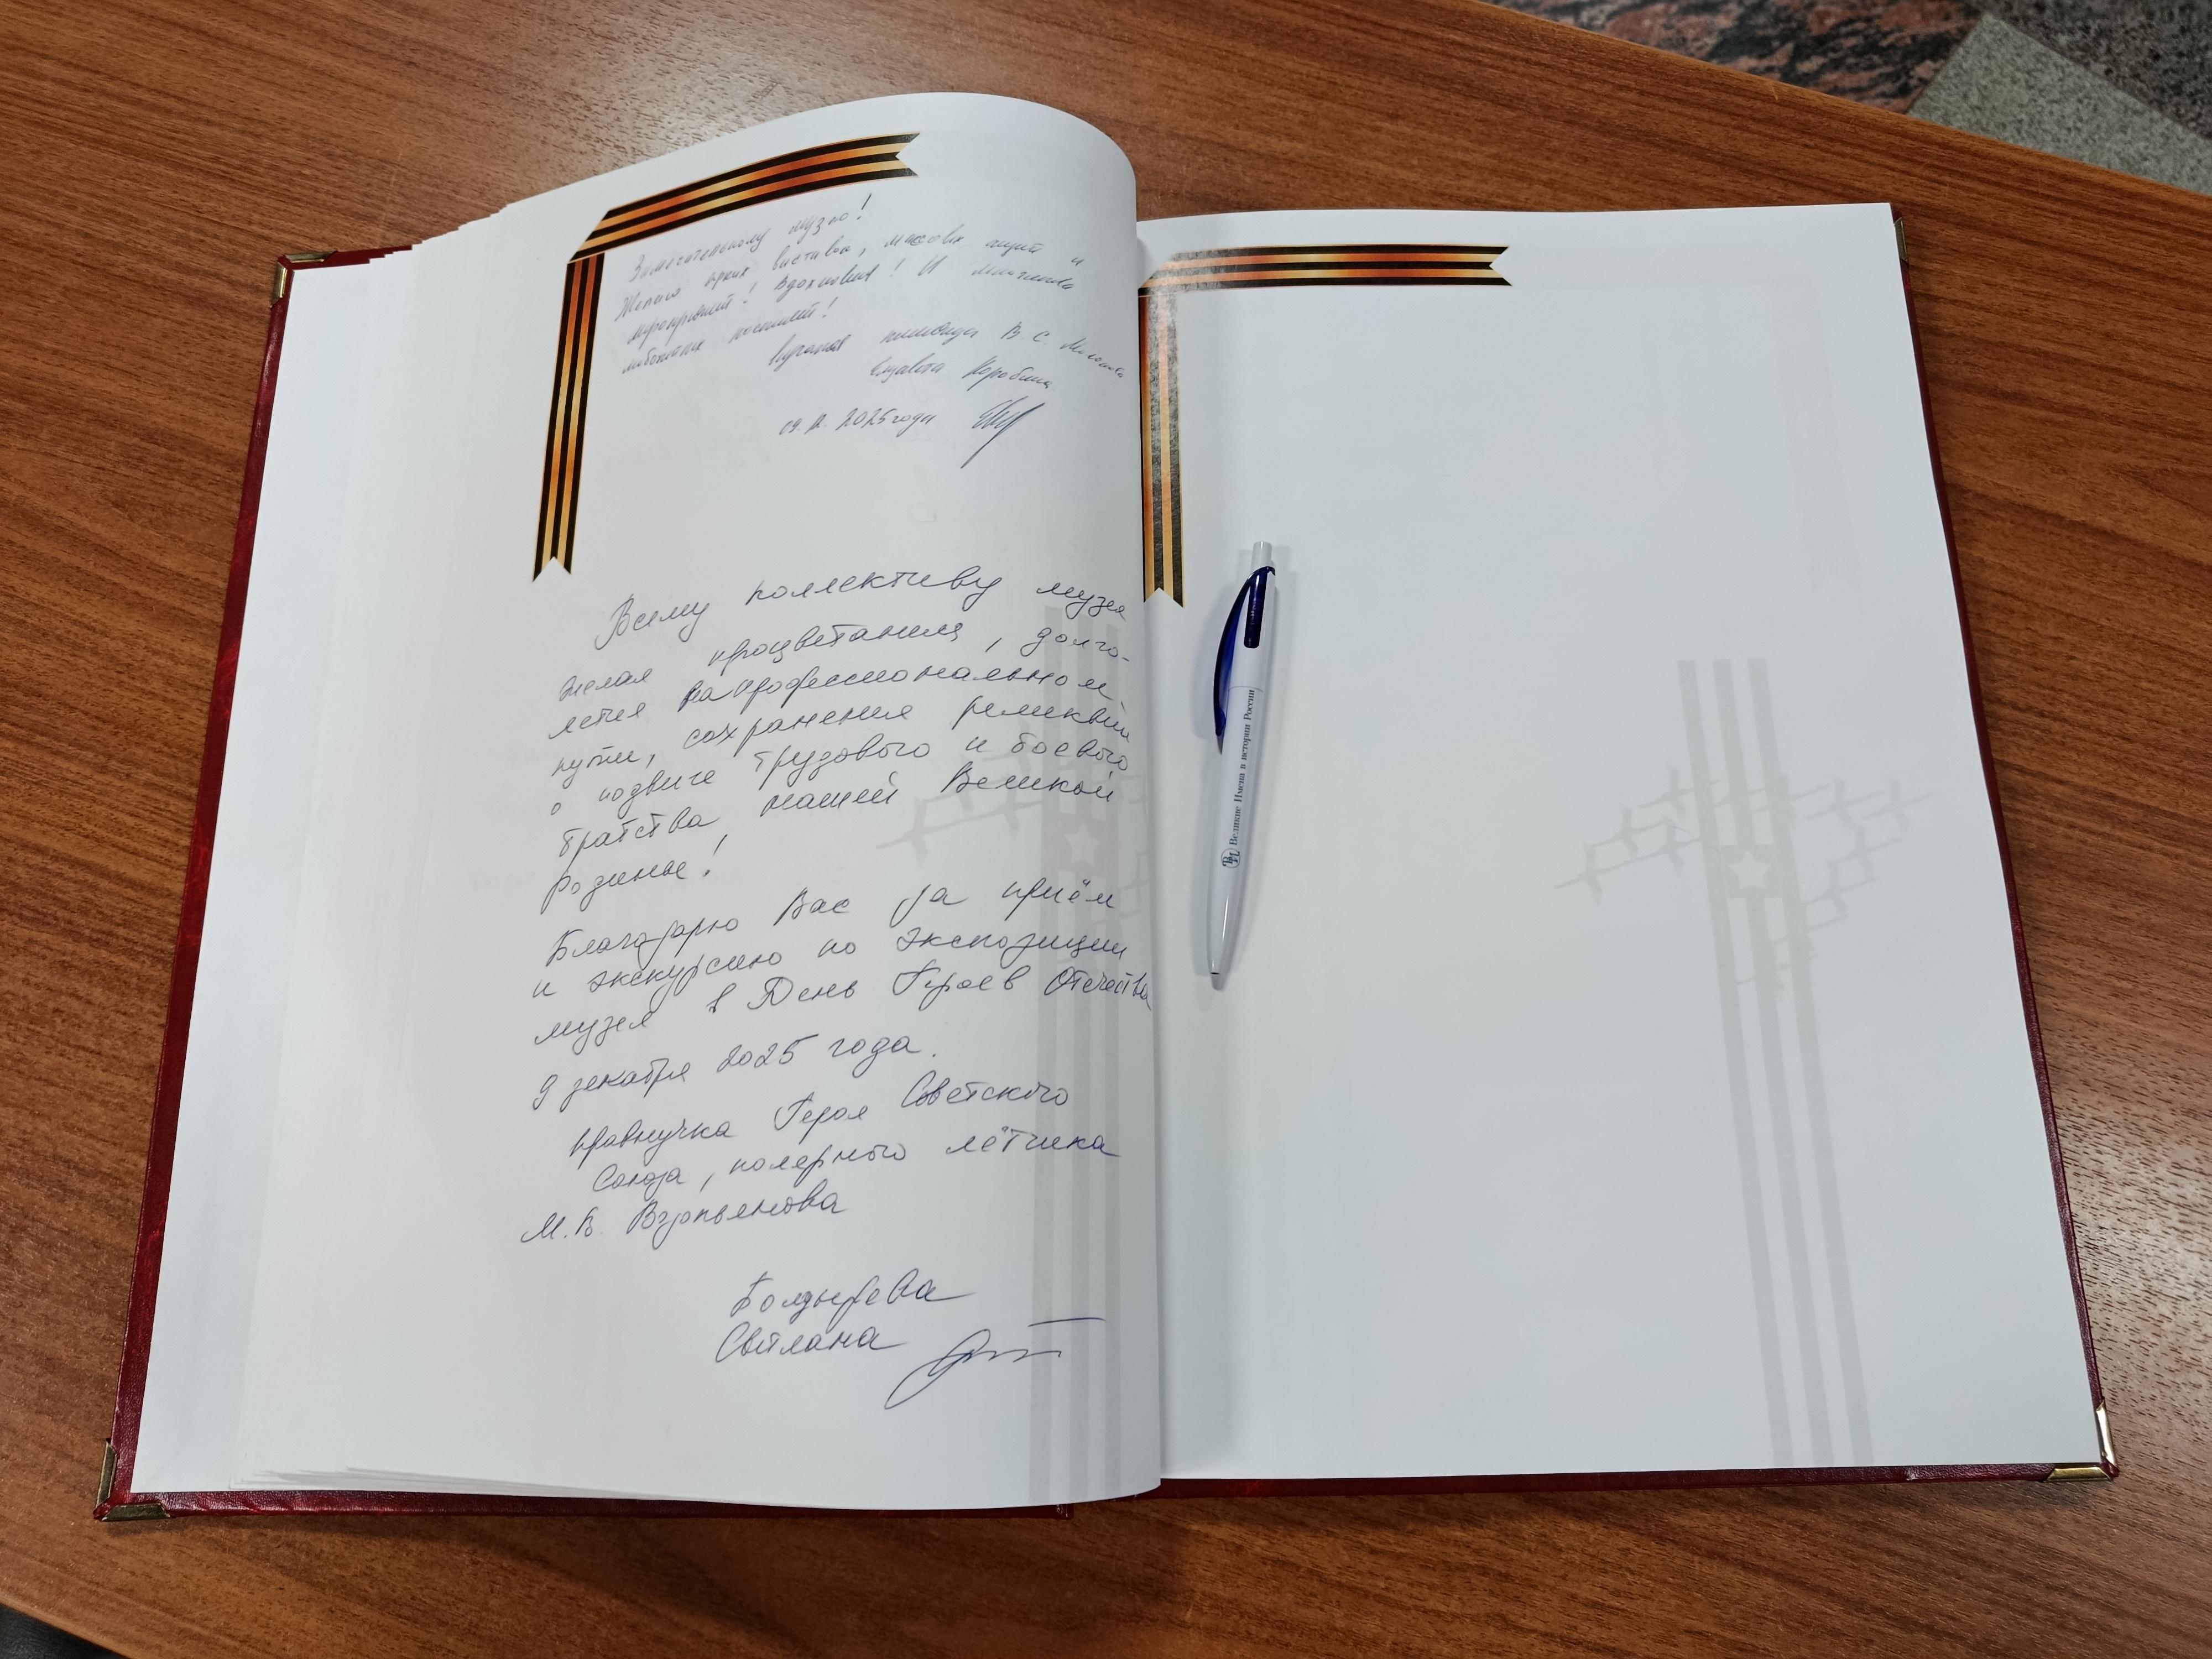 Замечательному музею!
Желаю ярких выставок, массовых акций и
мероприятий! Вдохновения! И
любимых
Правнучка В. С. Молокова
Елизавета
2025 года
Всему коллективу музея
желаю процветания, долго-
летия на профессиональном
пути, сохранения реликвий
о подвиге трудового и боевого
братства нашей Великой
Родины!
Благодарю Вас за приём
и экскурсию по экспозиции
музея в День Героев Отечества
9 декабря 2025 года.
правнучка Героя Советского
Союза, полярного лётчика
М.В. Водопьянова
Болдырева
Светлана
ВИ Великие Имена в истории России